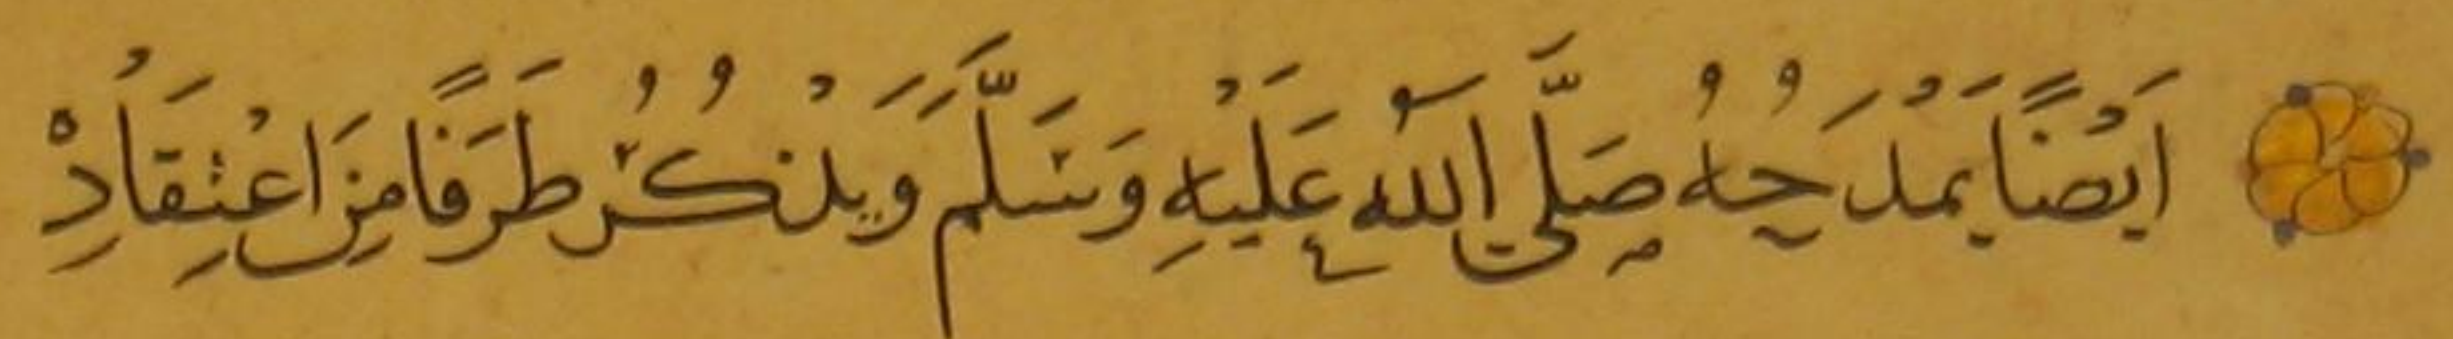 اَيْضًا يَمْدَحُهُ صَلَّى اللّٰهُ عَلَيْهِ وَسَلَّمَ وَيَذْكُرُ طَرَفًا مِنَ اعْتِقَادِ